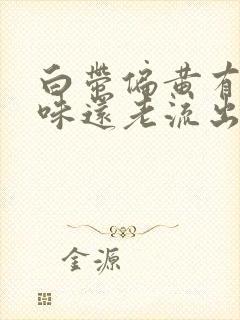 白带偏黄有
味还老流出
金源